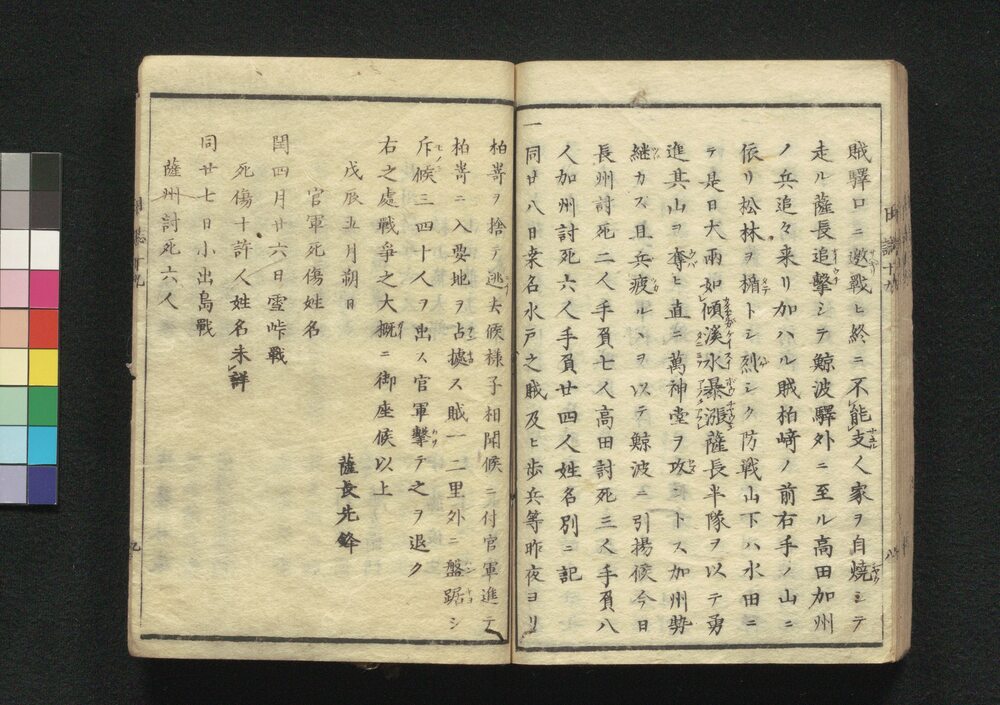 賊驛口ニ邀戰ヒ終ニ不能支人家ヲ自燒シテ
走ル薩長追擊シテ鯨波驛外ニ至ル高田加州
ノ兵追々来リ加ハル賊柏﨑ノ前右手ノ山ニ
依リ松林ヲ楯トシ烈シク防戦山下ハ水田ニ
テ是日大雨如傾溪水暴漲薩長半隊ヲ以テ勇
進其山ヲ奪ヒ直ニ萬神堂ヲ攻ントス加州勢
継カス且兵疲ルヽヲ以テ鯨波ニ引揚候今日
長州討死二人手負七人高田討死三人手負八
人加州討死六人手負廿四人姓名別ニ記
一同廿八日桒名水戸之賊及ヒ歩兵等昨夜ヨリ
柏嵜ヲ捨テ逃去候様子相聞候ニ付官軍進テ
柏嵜ニ入要地ヲ占據ス賊一二里外ニ盤踞シ
斥候三四十人ヲ出ス官軍擊テ之ヲ退ク
右之處戰争之大概ニ御座候以上
戊辰五月朔日
薩長先鋒
官軍死傷姓名
閏四月廿六日雪峠戰
死傷十許人姓名未詳
同廿七日小出島戰
薩州討死六人